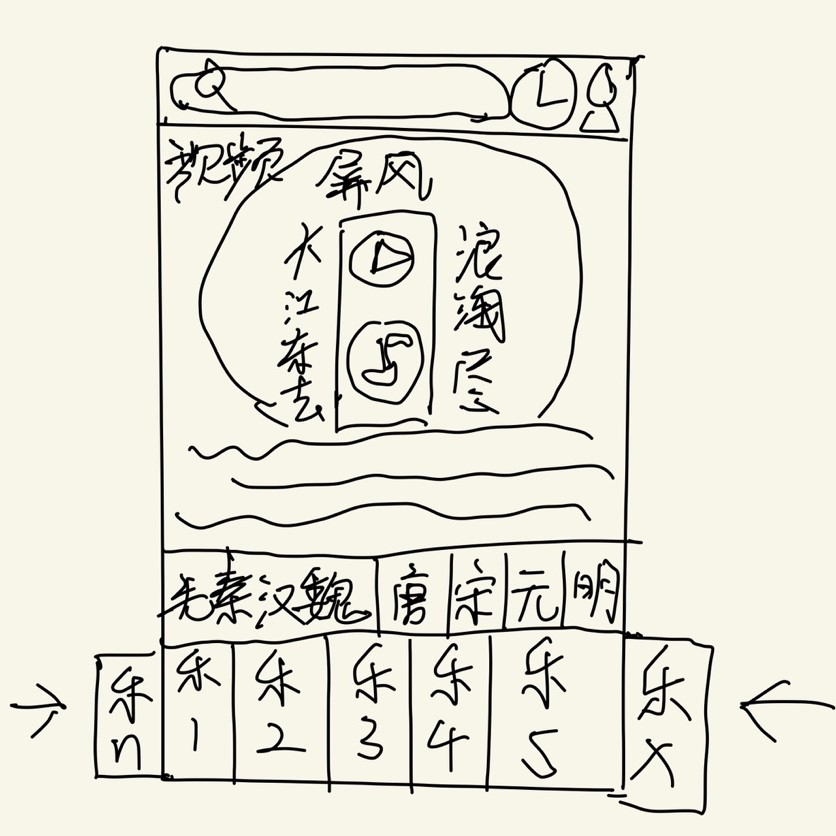 视频
屏风
大江东去
浪淘尽
先秦汉魏 唐 宋 元 明
乐n 乐1 乐2 乐3 乐4 乐5 乐X